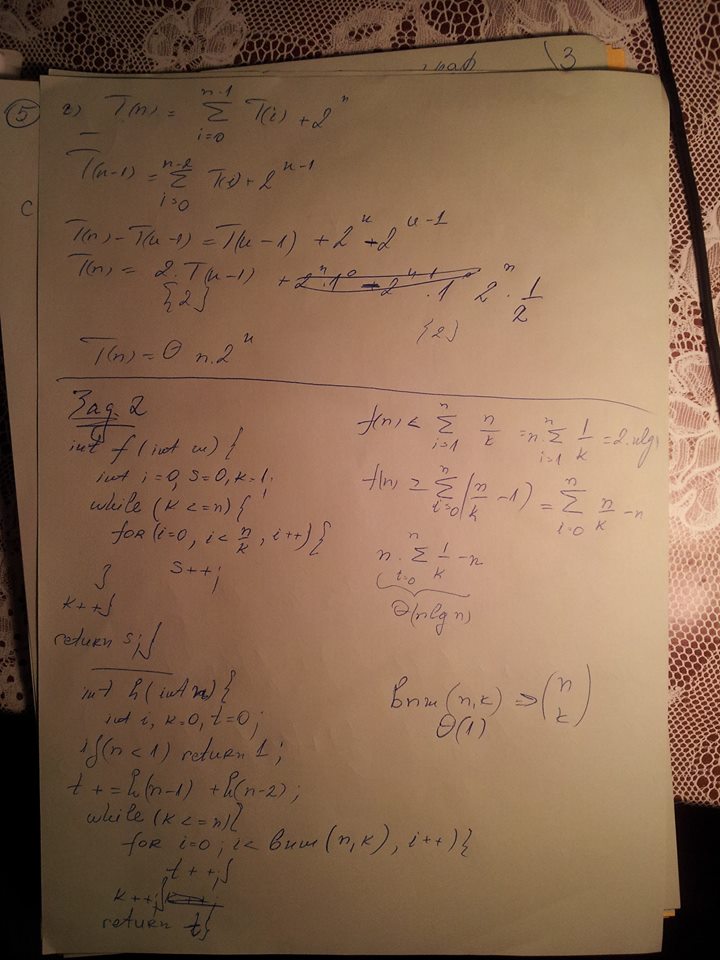 13
5
c
г) T(n) = \sum_{i=0}^{n-1} T(i) + 2^n
T(n-1) = \sum_{i=0}^{n-2} T(i) + 2^{n-1}
T(n) - T(n-1) = T(n-1) + 2^n - 2^{n-1}
T(n) = 2.T(n-1) + 2^n.1^0 - 2^{n-1}.1^0 2^n . \frac{1}{2}
{2} {2}
T(n) = Θ n.2^n
Зад. 2
int f (int n) {
int i=0, s=0, k=1;
while (k <= n) {
for (i=0, i < \frac{n}{k}, i++) {
s++;
}
k++}
return s;}
f(n) < \sum_{i=1}^{n} \frac{n}{k} = n.\sum_{i=1}^{n} \frac{1}{k} = 2.nlgn
f(n) ≥ \sum_{i=0}^{n} (\frac{n}{k} - 1) = \sum_{i=0}^{n} \frac{n}{k} - n
n.\sum_{i=0}^{n} \frac{1}{k} - n
Θ(nlgn)
int h (int n) {
int i, k=0, t=0;
if (n < 1) return 1;
t += h(n-1) + h(n-2);
while (k <= n) {
for i=0; i < bnm (n,k), i++) {
t++;}
k++;} k++;
return t}
bnm (n,k) => \binom{n}{k}
Θ(1)